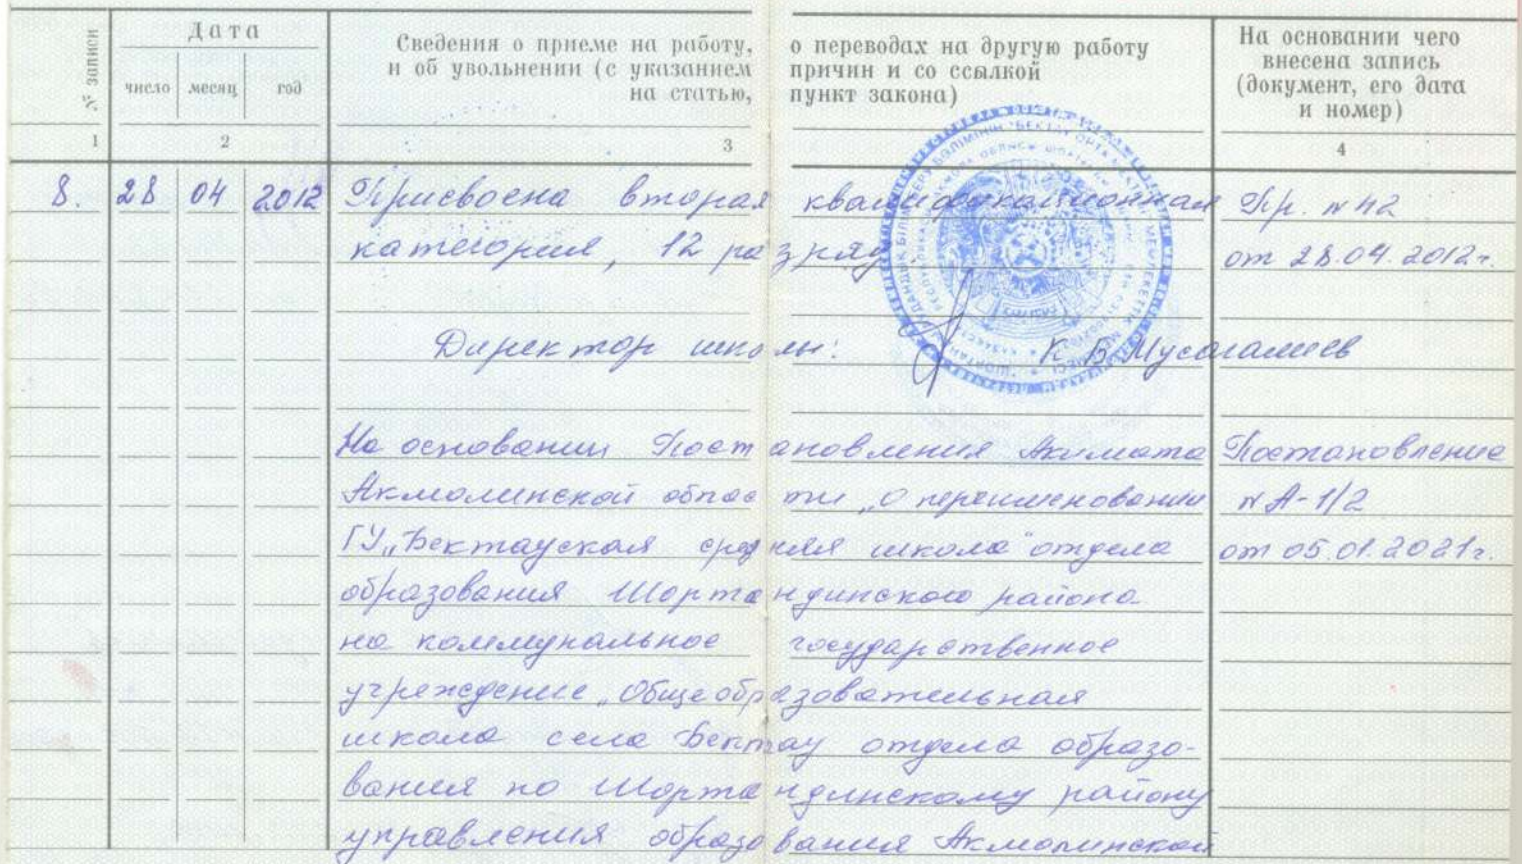 № записи
Дата
число месяц год
Сведения о приеме на работу, о переводах на другую работу
и об увольнении (с указанием причин и со ссылкой
на статью, пункт закона)
На основании чего
внесена запись
(документ, его дата
и номер)
1 2 3 4
8. 28 04 2012 Присвоена вторая квалификационная Пр. № 42
категория, 12 разряд. от 28.04.2012г.
Директор школы: К. Б. Мусагалиев
На основании Постановления Акимата Постановление
Акмолинской области „О переименовании № А-1/2
ГУ „Бектауская средняя школа" отдела от 05.01.2021г.
образования Шортандинского района
на коммунальное государственное
учреждение „Общеобразовательная
школа села Бектау отдела образо-
вания по Шортандинскому району
управления образования Акмолинской